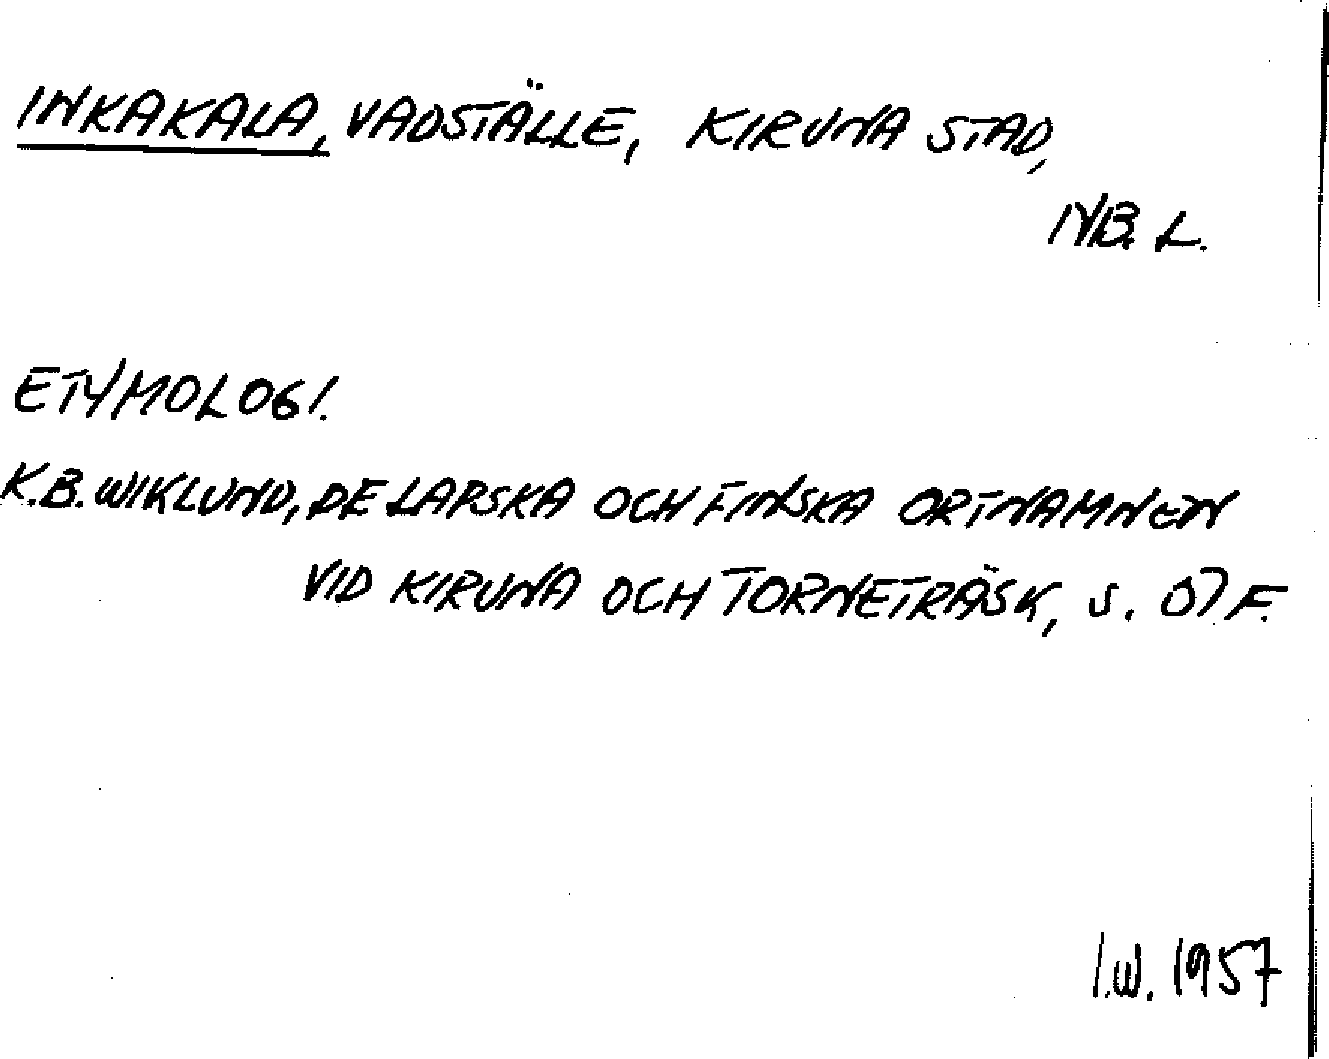 INKAKALA, VADSTÄLLE, KIRUNA STAD,
NB. L.
ETYMOLOGI.
K.B. WIKLUND, DE LAPSKA OCH FINSKA ORTNAMNEN
VID KIRUNA OCH TORNETRÄSK, S. F.
I.W. 1957